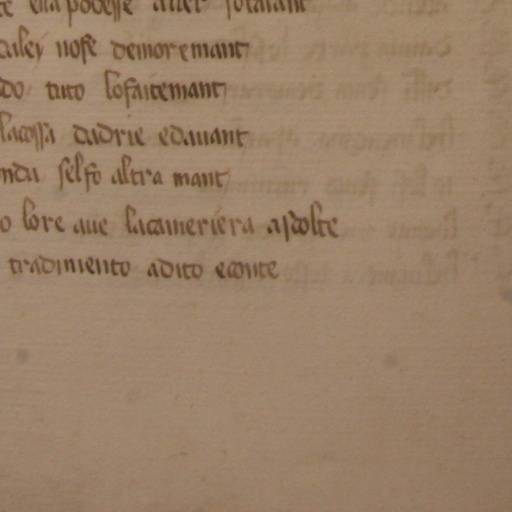 ella podesse auer
daley nose demoremant
do tuto lofaitemant
lacossa dadrie edauant
ndu selfo altra mant
o lore aue lacameriera ascolte
tradimento adito econte